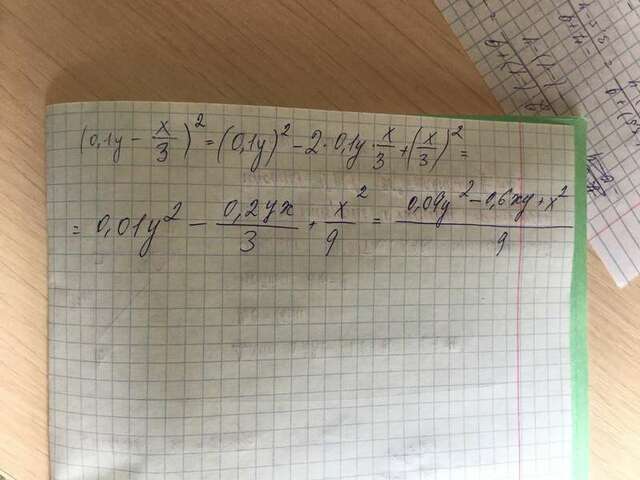 (0,1y - x/3)² = (0,1y)² - 2·0,1y·x/3 + (x/3)² =
= 0,01y² - 0,2yx/3 + x²/9 = 0,09y² - 0,6xy + x²/9